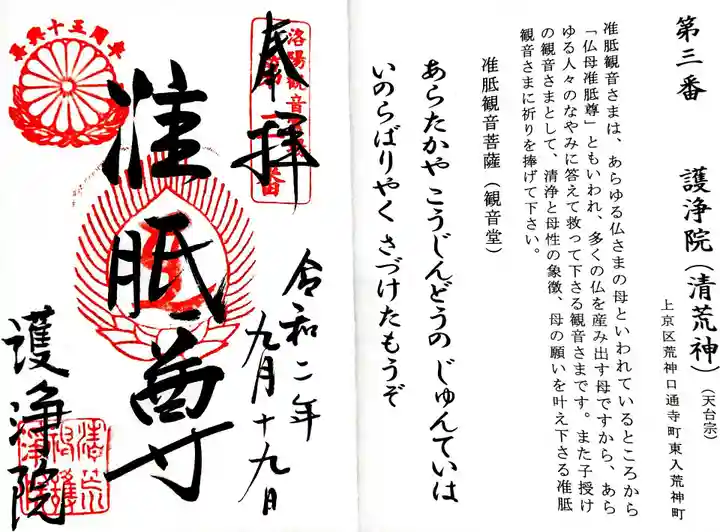 第三番　護浄院（清荒神）（天台宗）
上京区荒神口通寺町東入荒神町
准胝観音さまは、あらゆる仏さまの母といわれているところから
「仏母准胝尊」ともいわれ、多くの仏を産み出す母ですから、あら
ゆる人々のなやみに答えて救って下さる観音さまです。また子授け
の観音さまとして、清浄と母性の象徴、母の願いを叶え下さる准胝
観音さまに祈りを捧げて下さい。
准胝観音菩薩（観音堂）
あらたかや こうじんどうの じゅんていは
いのらばりやく さづけたもうぞ
奉拝
洛陽観音
番
令和二年
九月十九日
准胝尊
再興十五周年
護浄院